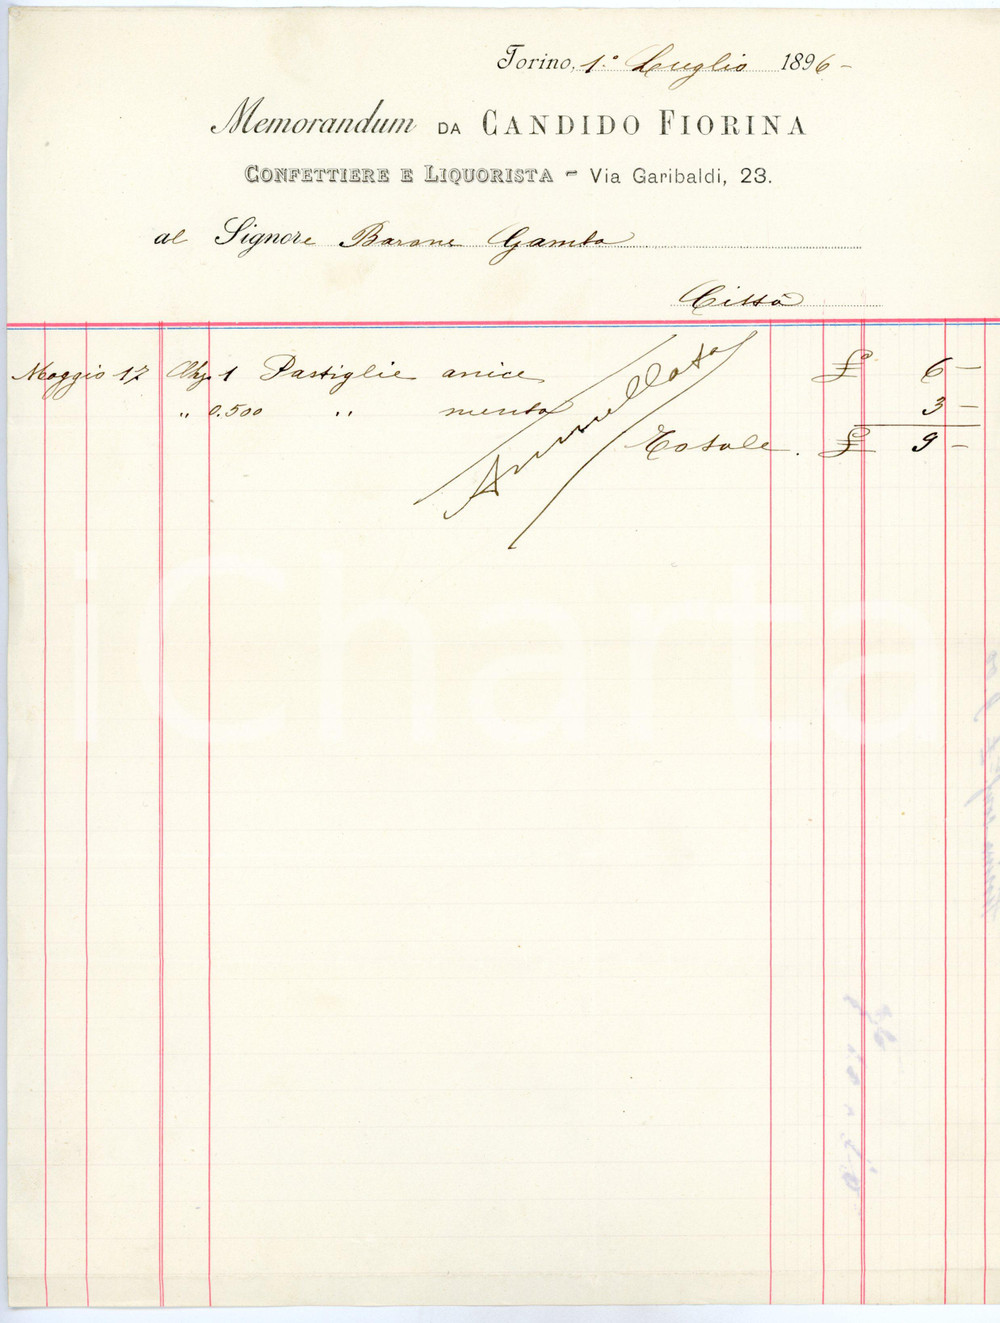 Torino, 1.° Luglio 1896-
Memorandum DA CANDIDO FIORINA
CONFETTIERE E LIQUORISTA - Via Garibaldi, 23.
al Signore Barone Gamba
Città
Maggio 17 Chg. 1 Pastiglie anice £ 6 -
" 0.500 " menta 3 -
Totale. £ 9 -
Annullata
iCharta